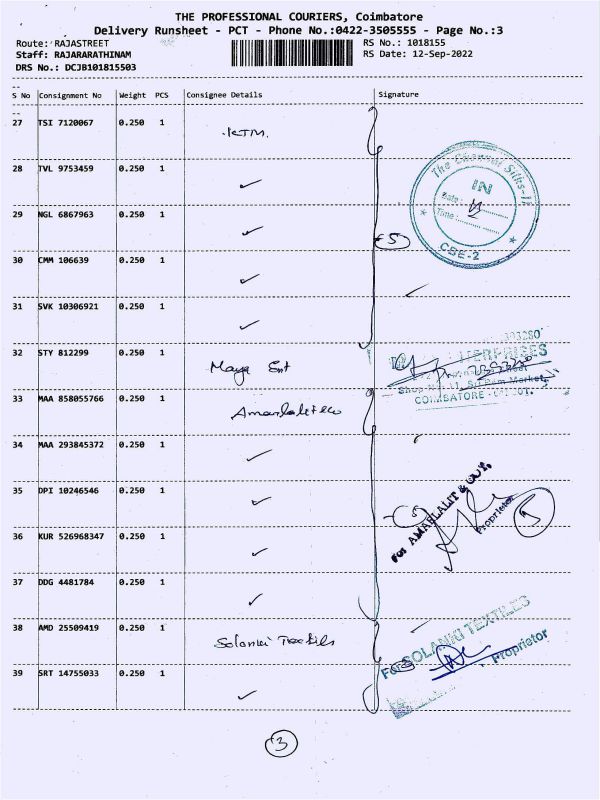 THE PROFESSIONAL COURIERS, Coimbatore
Delivery Runsheet - PCT - Phone No.:0422-3505555 - Page No.:3
Route: RAJASTREET
RS No.: 1018155
Staff: RAJARARATHINAM
RS Date: 12-Sep-2022
DRS No.: DCJB101815503
S No Consignment No Weight PCS Consignee Details Signature
27 TSI 7120067 0.250 1 KTM.
28 TVL 9753459 0.250 1 ✓
29 NGL 6867963 0.250 1 ✓
30 CMM 106639 0.250 1 ✓
31 SVK 10306921 0.250 1 ✓
32 STY 812299 0.250 1 Maya Ent
33 MAA 858055766 0.250 1
34 MAA 293845372 0.250 1 ✓
35 DPI 10246546 0.250 1 ✓
36 KUR 526968347 0.250 1 ✓
37 DDG 4481784 0.250 1 ✓
38 AMD 25509419 0.250 1 Solanki Textiles
39 SRT 14755033 0.250 1 ✓
The Chennai Silks-II
IN
Date:
Time:
CBE-2
5
COIMBATORE
For AMARLALIT & COY.
Proprietor
5
For SOLANKI TEXTILES
Proprietor
3